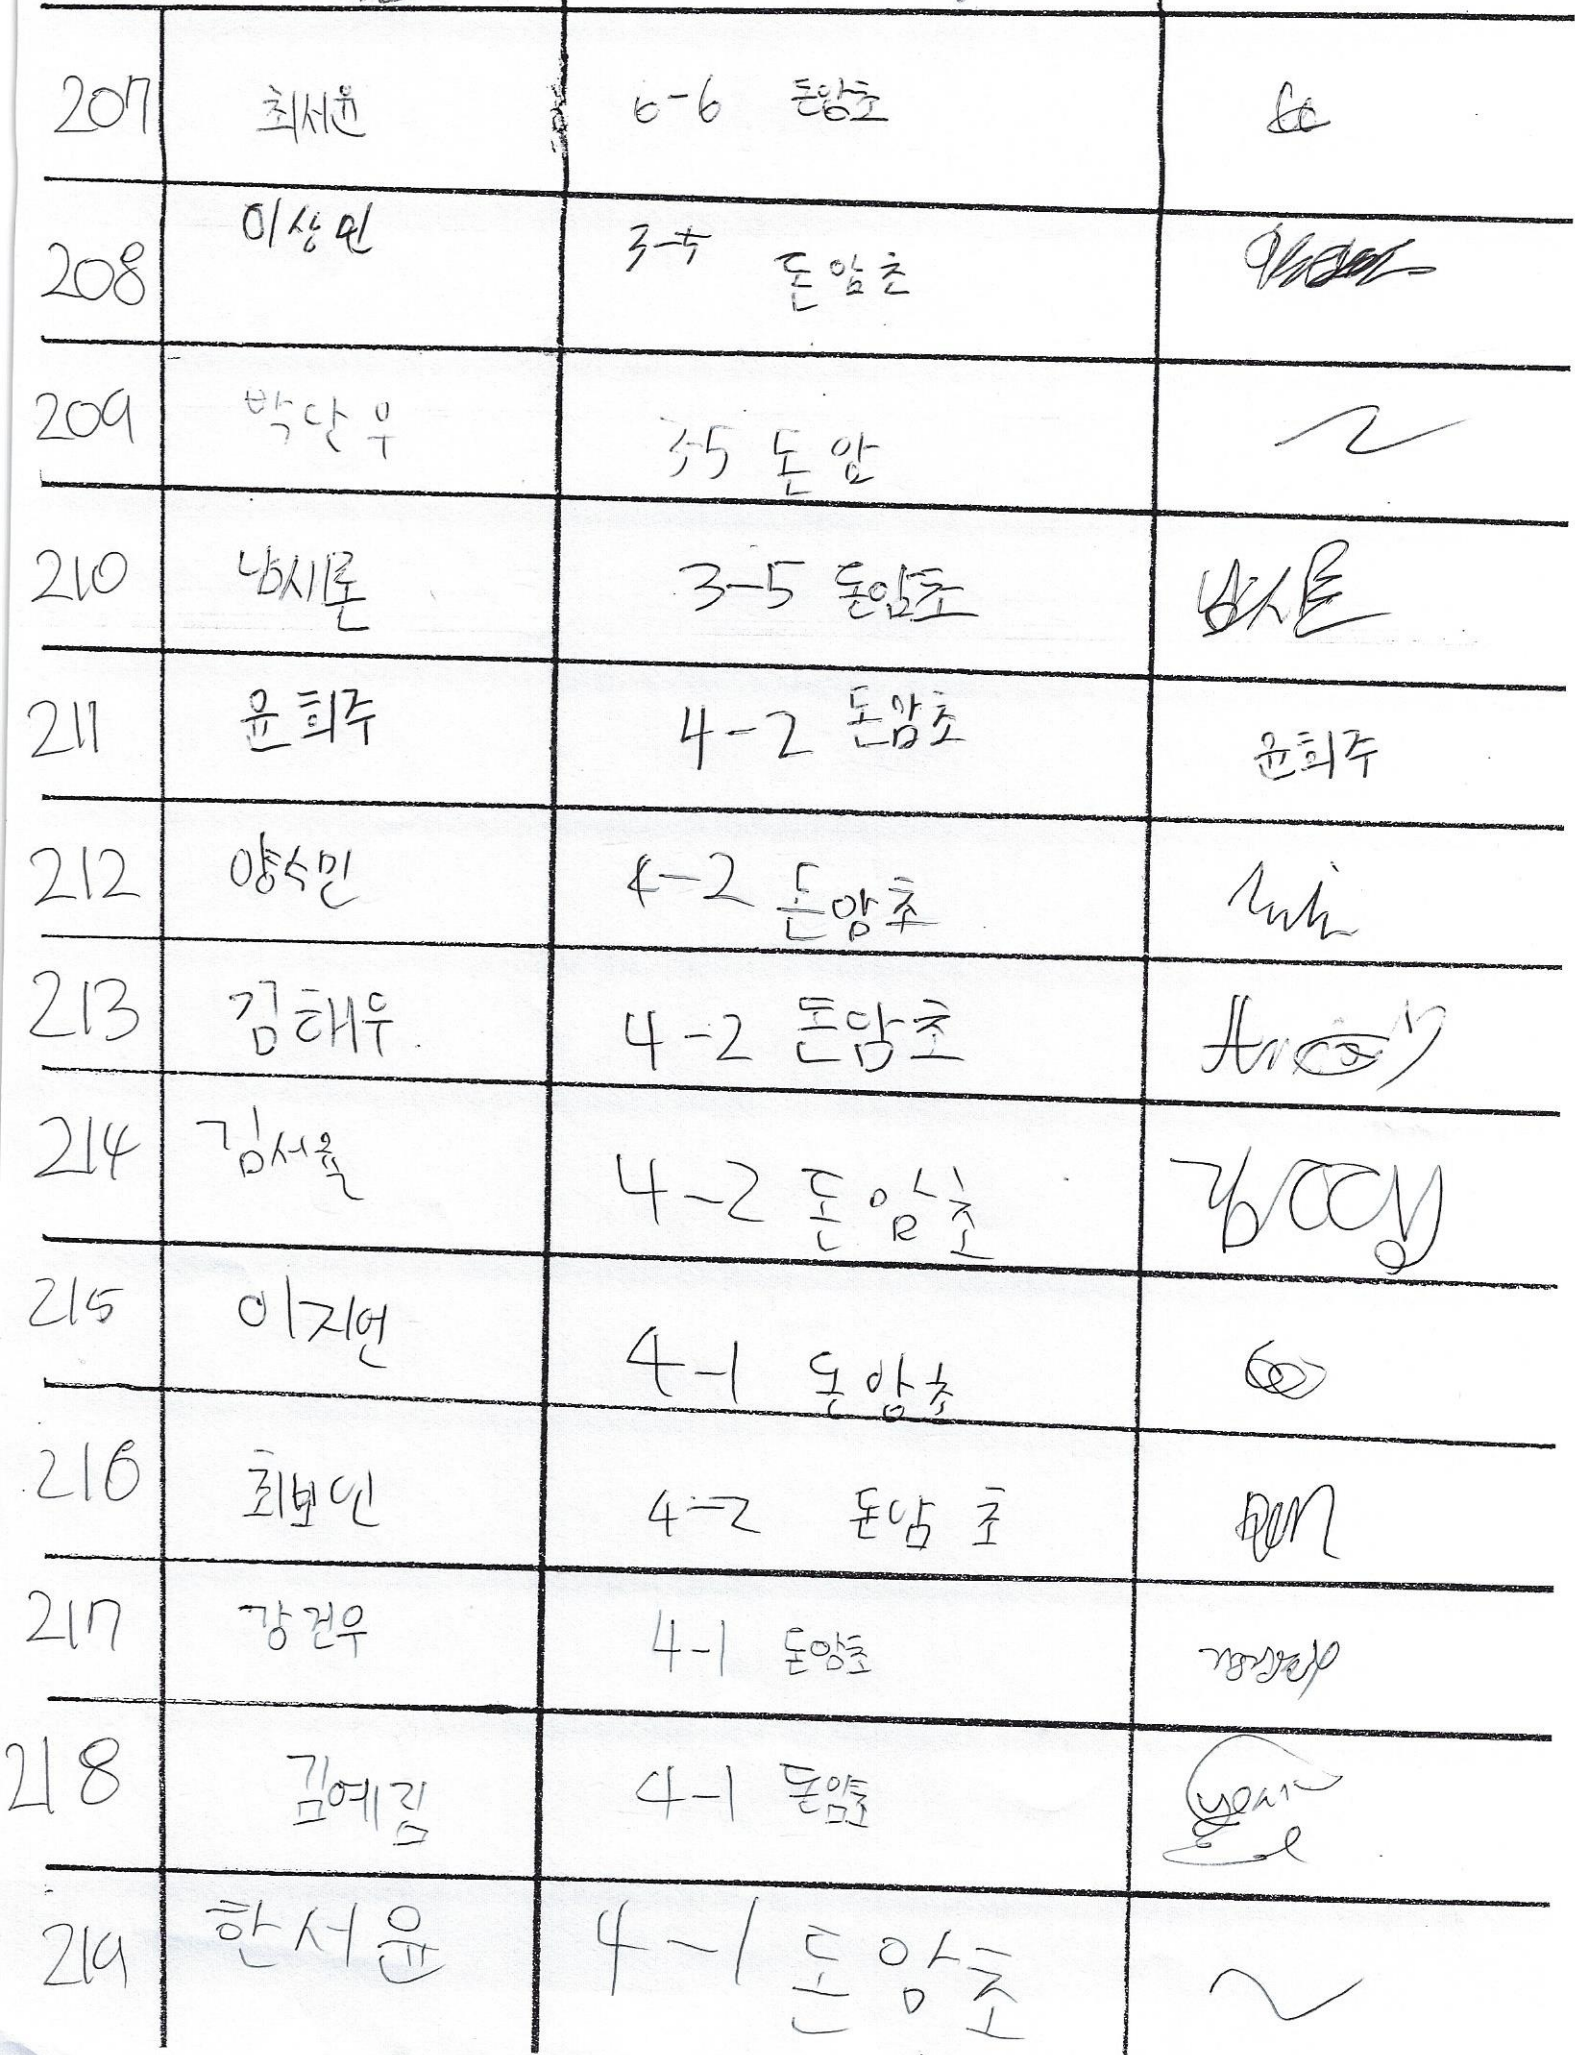 207 최서윤 6-6 돈암초
208 이상민 3-5 돈암초
209 박단우 3-5 돈암
210 남시론 3-5 돈암초 남시론
211 윤희주 4-2 돈암초 윤희주
212 양수민 4-2 돈암초
213 김태우 4-2 돈암초
214 김서율 4-2 돈암초
215 이지언 4-1 돈암초
216 최보민 4-2 돈암초
217 강건우 4-1 돈암초
218 김예림 4-1 돈암초
219 한서윤 4-1 돈암초